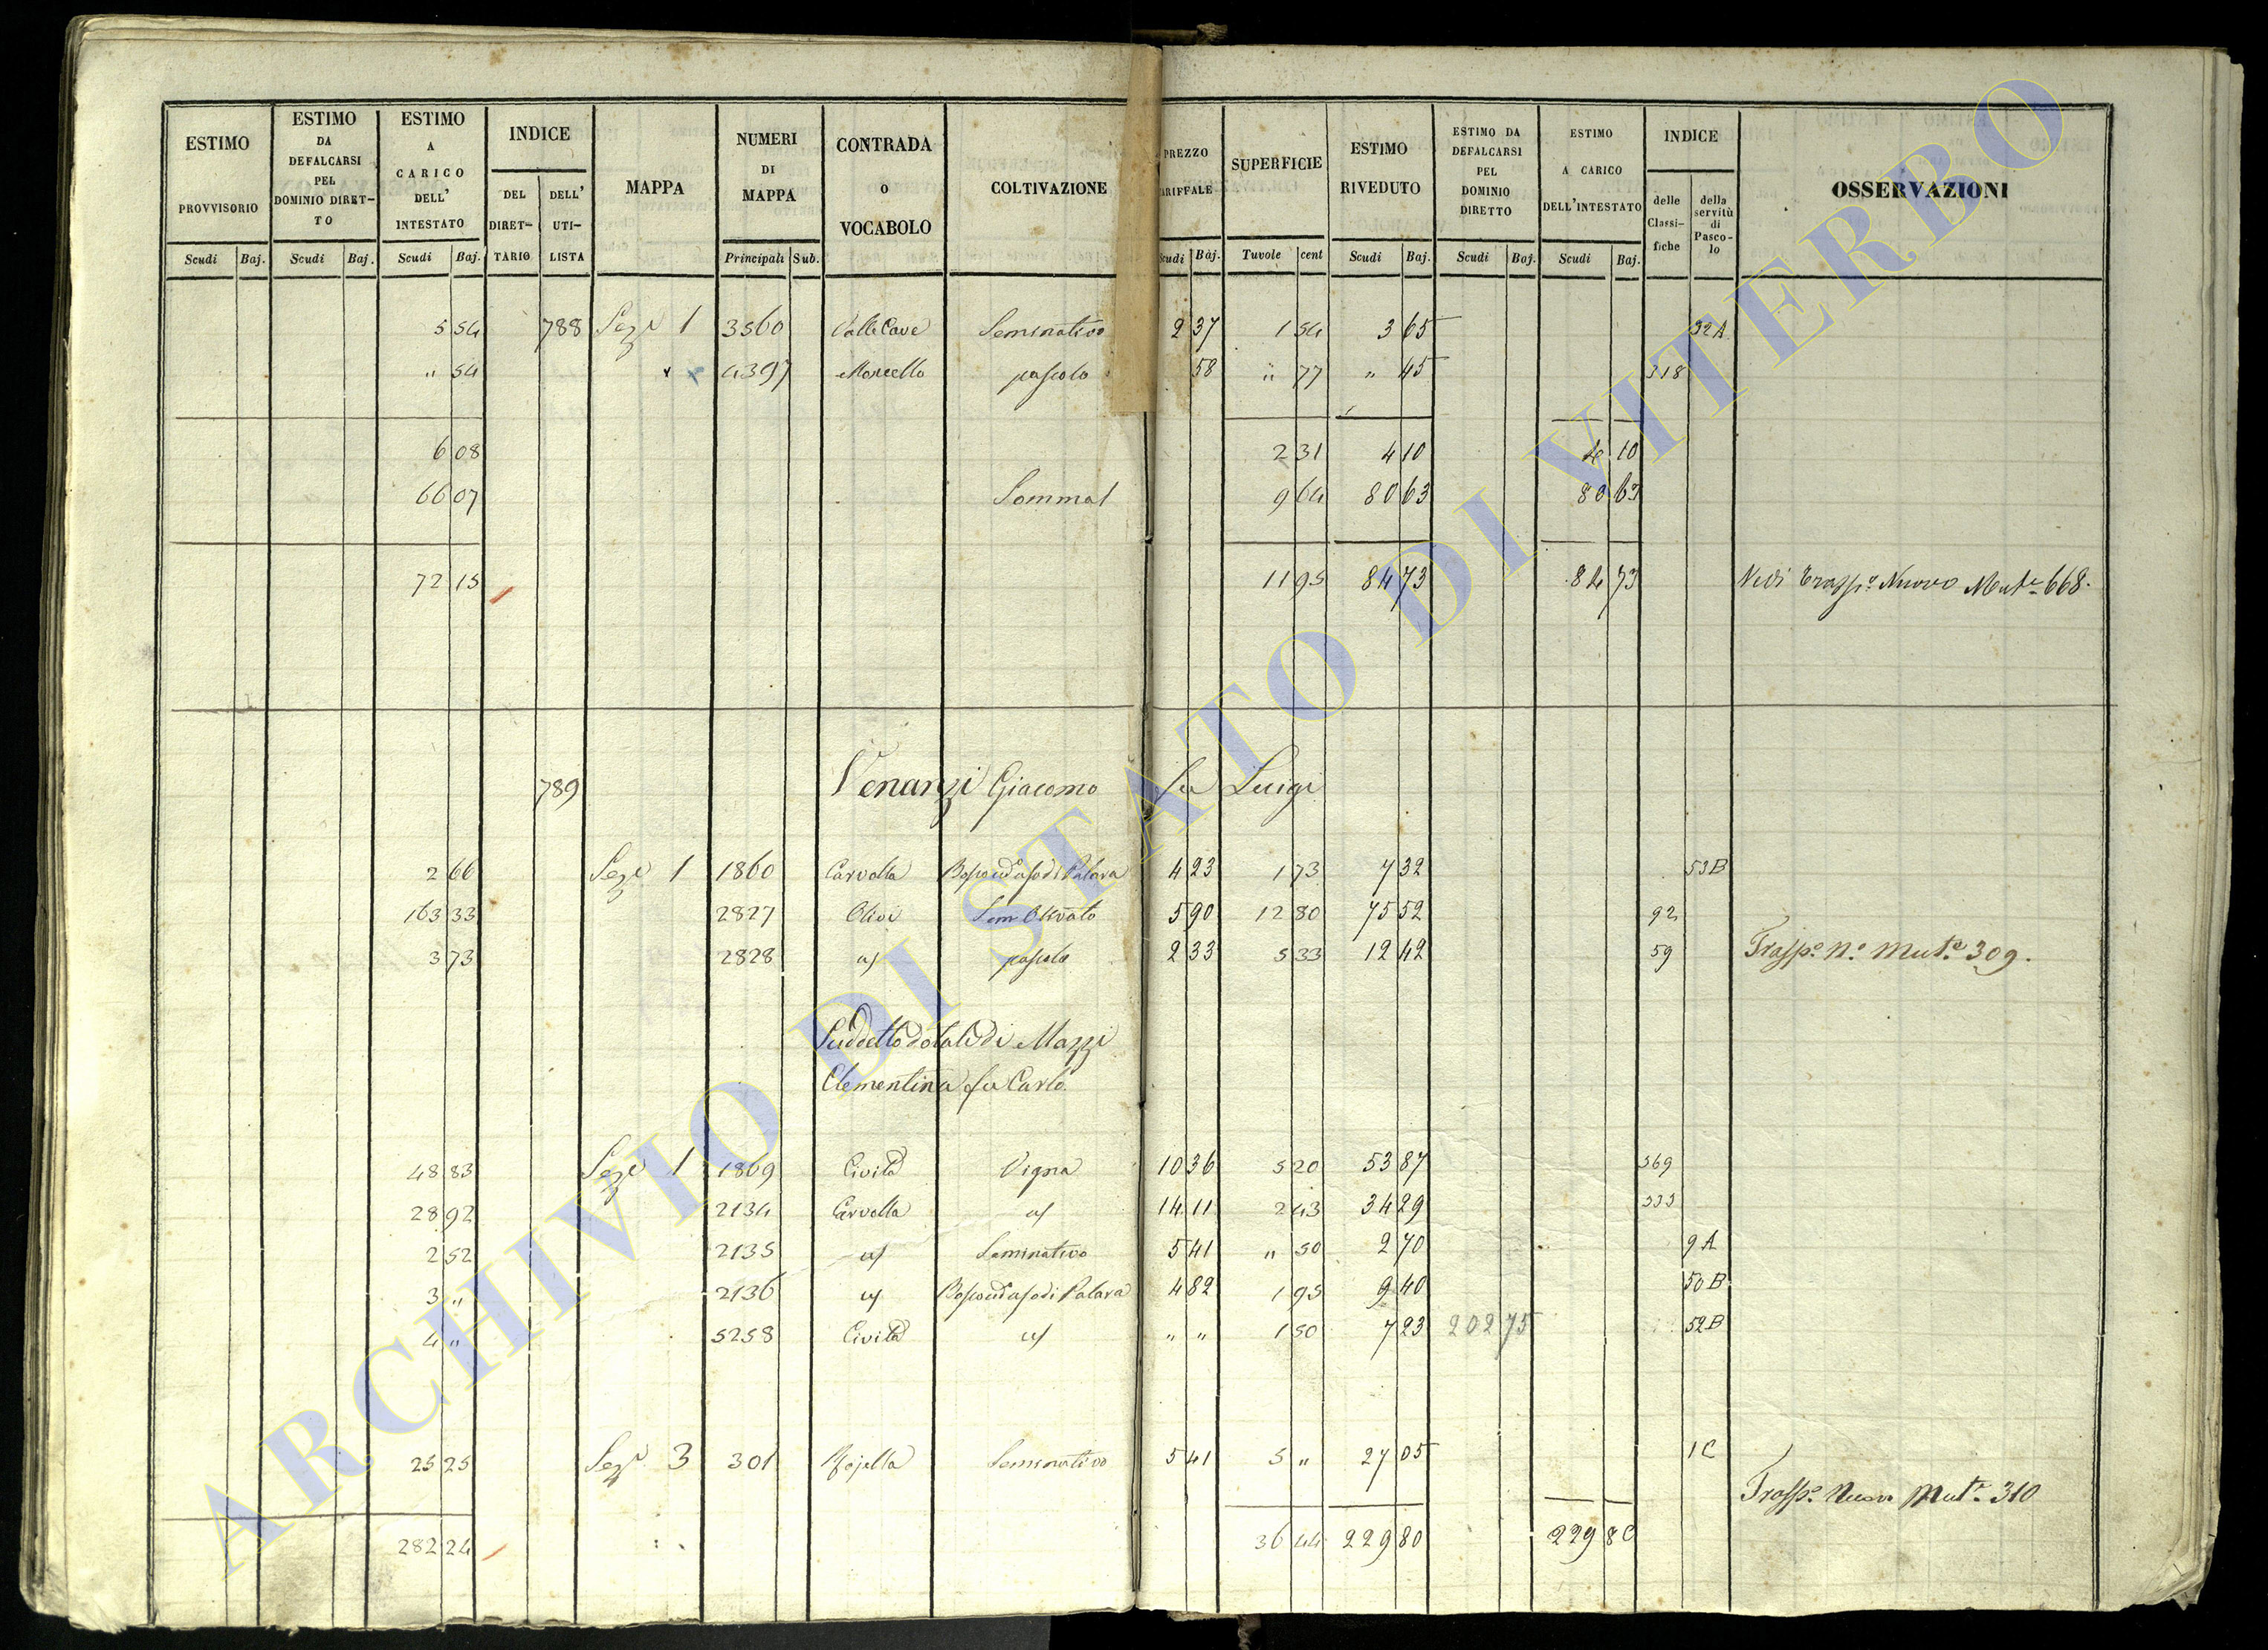 ESTIMO PROVVISORIO Scudi Baj.
ESTIMO DA DEFALCARSI PEL DOMINIO DIRET-TO Scudi Baj.
ESTIMO A CARICO DELL' INTESTATO Scudi Baj.
INDICE DEL DIRET-TARIO DELL' UTI-LISTA
MAPPA
NUMERI DI MAPPA Principali Sub.
CONTRADA O VOCABOLO
COLTIVAZIONE
PREZZO ARIFFALE Scudi Baj.
SUPERFICIE Tavole cent
ESTIMO RIVEDUTO Scudi Baj.
ESTIMO DA DEFALCARSI PEL DOMINIO DIRETTO Scudi Baj.
ESTIMO A CARICO DELL'INTESTATO Scudi Baj.
INDICE delle Classi-fiche della servitù di Pasco-lo
OSSERVAZIONI
5 54 788 Seze 1 3560 Valle Cave Seminativo 2 37 1 54 3 65 32A
" 54 4397 Morcello pascolo 58 " 77 " 45 318
6 08 2 31 4 10 4 10
66 07 Somma 9 64 80 63 80 63
72 15 11 95 84 73 84 73 Vedi Trasspo Nuovo Mut. 668.
789 Venanzi Giacomo fu Luigi
2 66 Seze 1 1860 Carvolla 4 23 1 73 7 32 53B
163 33 2827 Olivi Sem Olivato 5 90 12 80 75 52 92
3 73 2828 pascolo 2 33 5 33 12 42 59 Traspo No Muta 309.
Suddetto dotale di Mazzi
Clementina fu Carlo
48 83 Seze 1 1869 Civita Vigna 10 36 5 20 53 87 369
28 92 2134 Carvolla 14 11 2 43 34 29 333
2 52 2135 Seminativo 5 41 " 50 2 70 9A
3 " 2136 4 82 1 95 9 40 50B
4 " 5258 Civita " " 1 50 7 23 202 75 52B
25 25 Seze 3 301 Seminativo 5 41 5 " 27 05 1C
Traspo Nuovo Mut. 310
282 24 36 44 229 80 229 80
ARCHIVIO DI STATO DI VITERBO